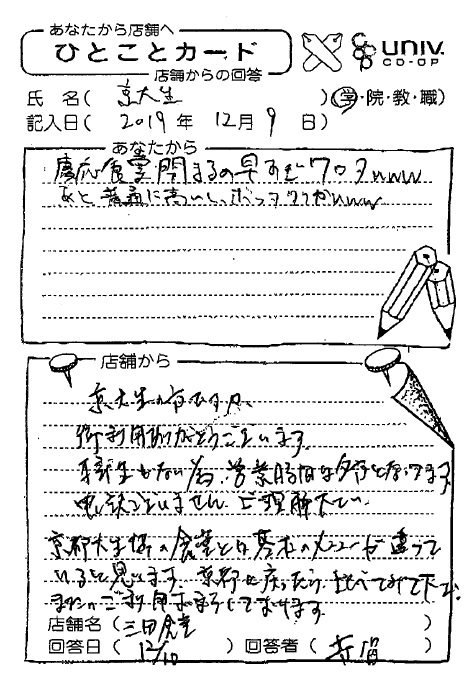 あなたから店舗へ
ひとことカード
店舗からの回答
UNIV.
CO-OP
氏 名( 京大生 )(学・院・教・職)
記入日( 2019 年 12月 9 日)
あなたから
慶応食堂閉まるの早すぎワロタwww
あと普通に高いし、ボッタクリかwww
店舗から
京大生の方ですか、
御利用ありがとうございます。
営業時間は夕方となってます
申し訳ございません。ご理解下さい。
京都大生協の食堂とは基本のメニューが違って
いると思います。京都に戻ったら比べてみて下さい
またのご利用お待ちしております。
店舗名( 三田食堂 )
回答日( 12/10 ) 回答者( )